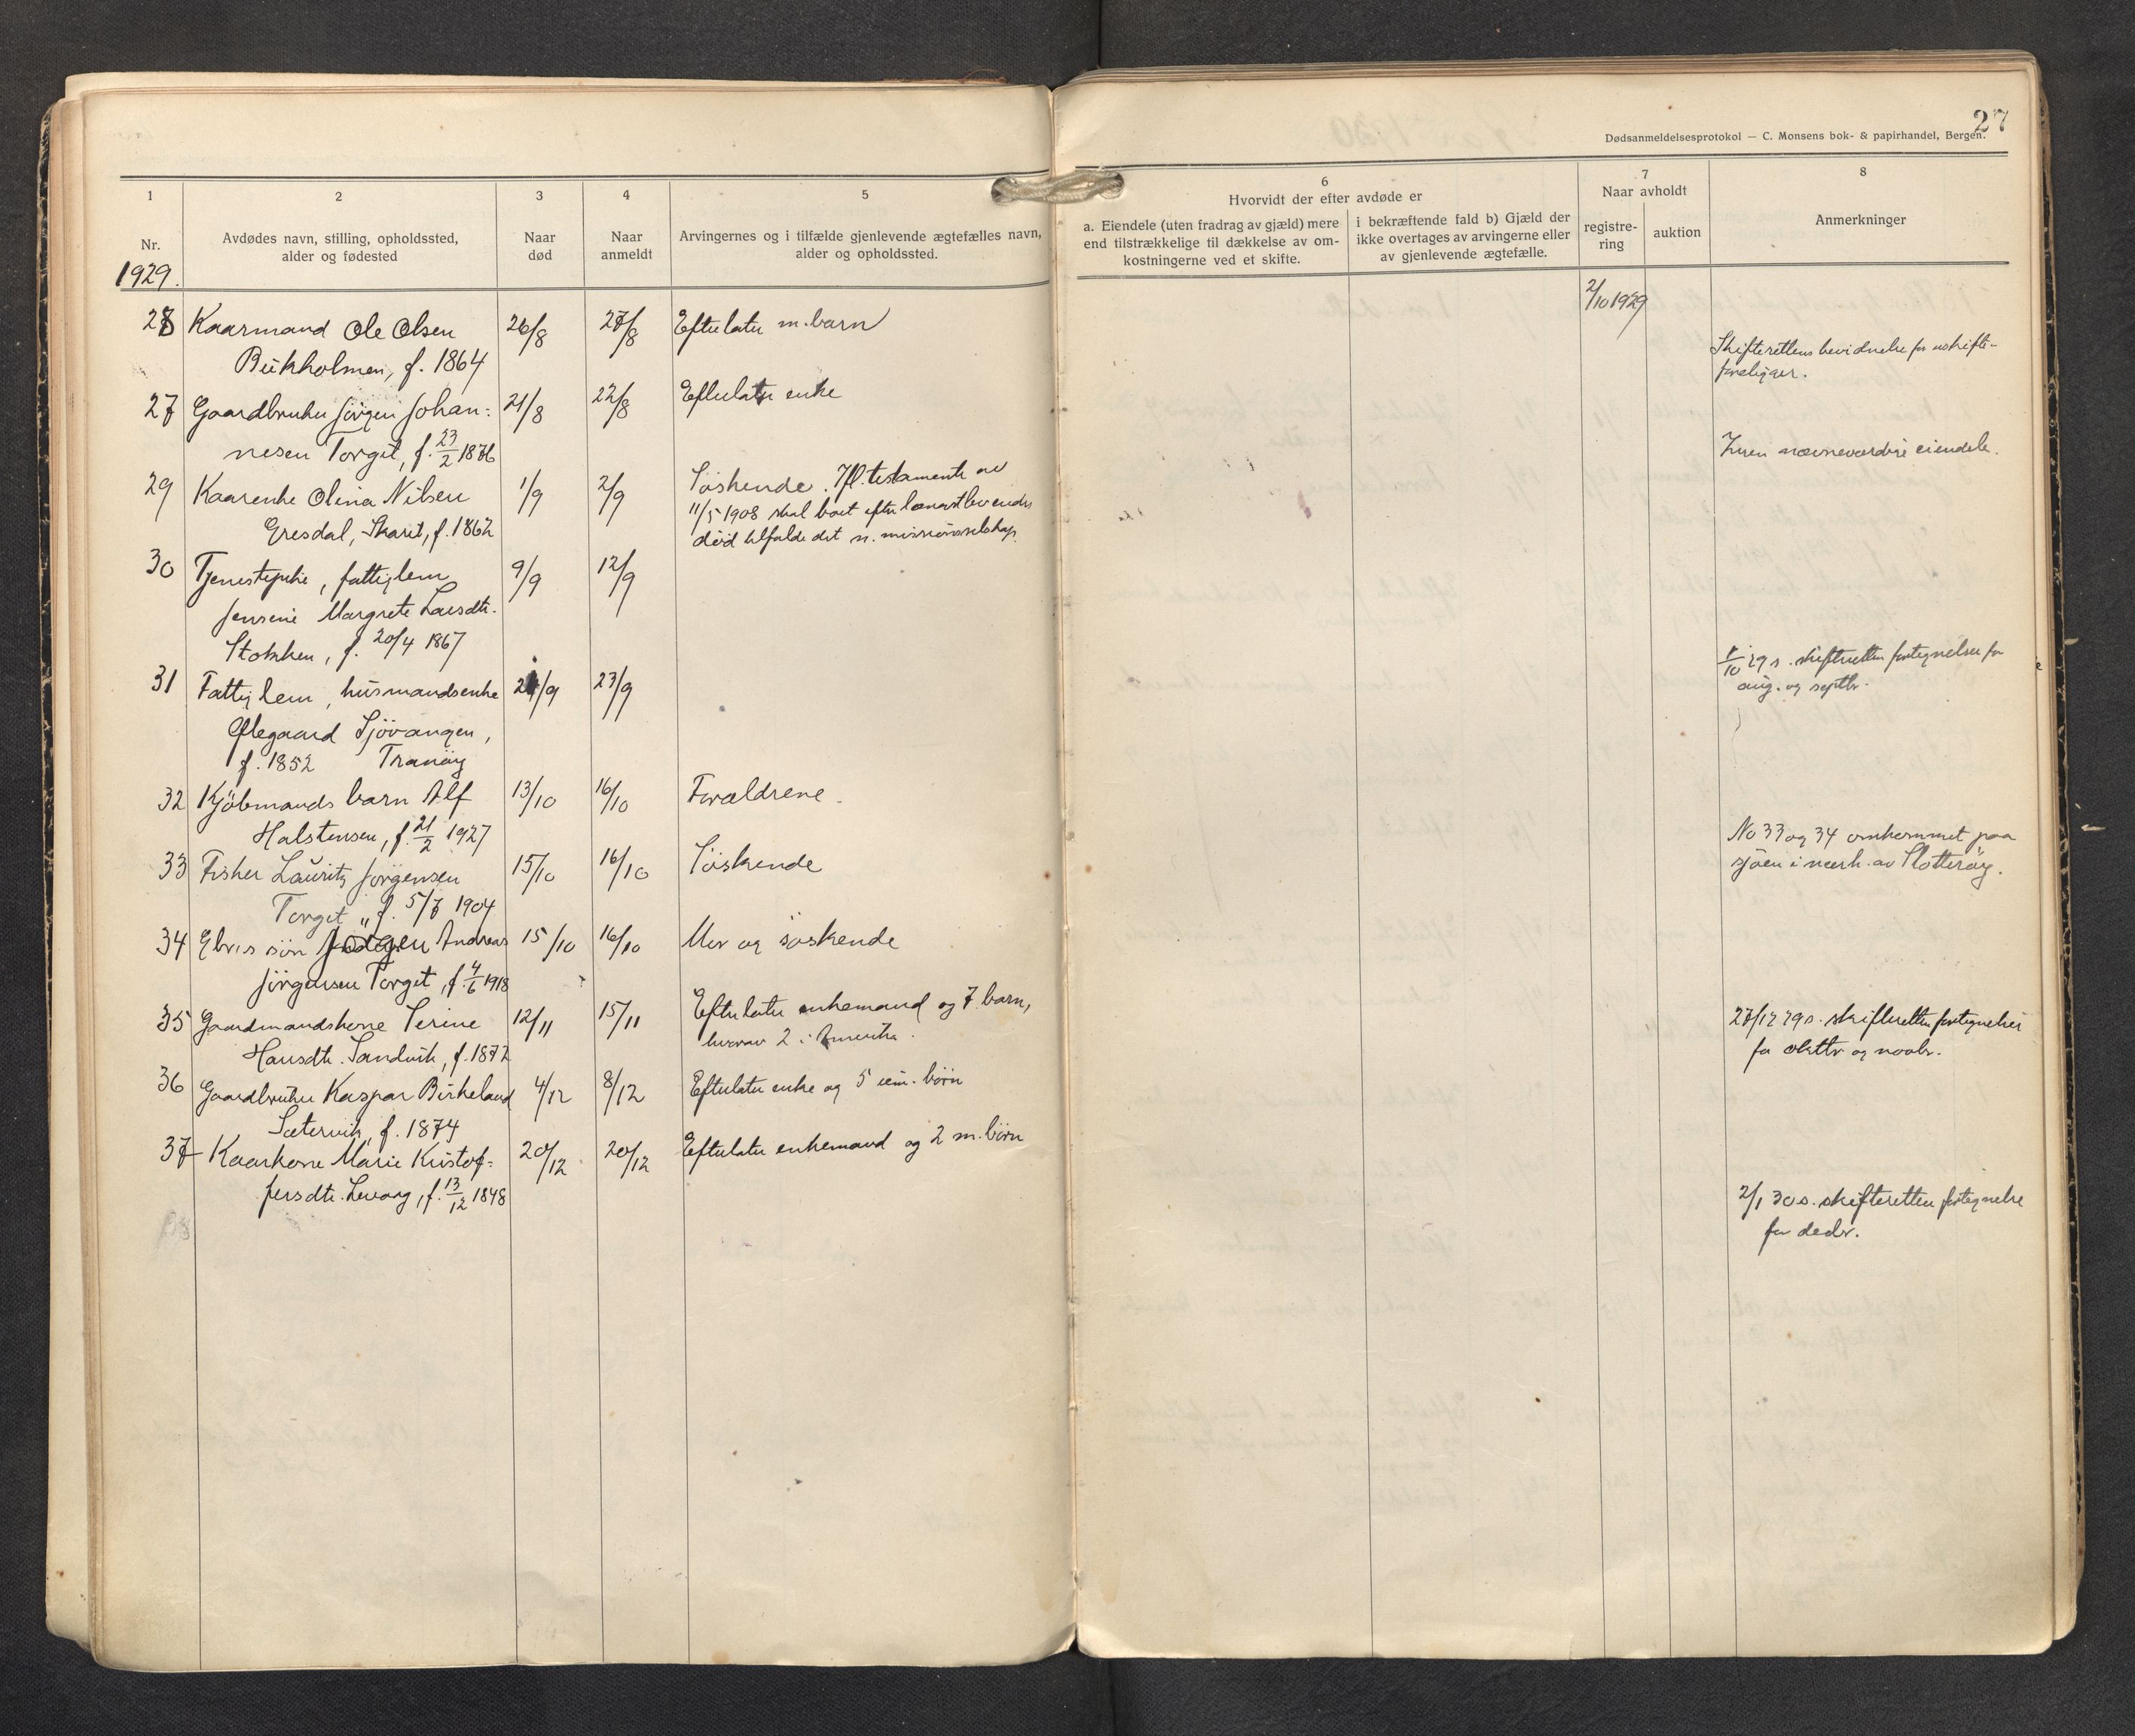 27
Dødsanmeldelsesprotokol — C. Monsens bok- & papirhandel, Bergen.
1
2
3
4
5
6
7
8
Nr.
1929.
Avdødes navn, stilling, opholdssted,
alder og fødested
Naar
død
Naar
anmeldt
Arvingernes og i tilfælde gjenlevende ægtefælles navn,
alder og opholdssted.
Hvorvidt der efter avdøde er
a. Eiendele (uten fradrag av gjæld) mere
end tilstrækkelige til dækkelse av om-
kostningerne ved et skifte.
i bekræftende fald b) Gjæld der
ikke overtages av arvingerne eller
av gjenlevende ægtefælle.
Naar avholdt
registre-
ring
auktion
Anmerkninger
28 Kaarmand Ole Olsen 26/8 27/8 Efterlater m. barn 2/10 1929
Bukholmen, f. 1864
Skifterettens bevidnelse for uskifte
foreligger.
27 Gaardbruker Jörgen Johan- 21/8 22/8 Efterlater enke
nesen Torget, f. 23/2 1876
Ingen nævneværdige eiendele.
29 Kaarenke Olina Nilsen 1/9 2/9 Söskende. Ifl. testamente av
11/5 1908 skal boet efter længstlevendes
Eresdal, Skaret, f. 1862
död tilfalde det n. missionsselskap.
30 Tjenestepike, fattiglem 9/9 12/9
Jensine Margrete Larsdtr.
Stokken, f. 20/4 1867
1/10 29 s. skifteretten fortegnelse for
aug. og septbr.
31 Fattiglem, husmandsenke /9 23/9
Olegaard Sjövangen,
f. 1852 Tranöy
32 Kjöbmands barn Alf 13/10 16/10 Forældrene.
Halstensen, f. 21/2 1927
No 33 og 34 omkommet paa
sjöen i nærh. av Slotteröy.
33 Fisker Lauritz Jörgensen 15/10 16/10 Söskende
Torget, f. 5/7 1904
34 Ebris sön Andreas 15/10 16/10 Mor og söskende
Jörgensen Torget, f. 4/6 1918
35 Gaardmandskone Serine 12/11 15/11 Efterlater enkemand og 7 barn,
hvorav 2 i Amerika.
Hansdtr. Sandvik, f. 1872
27/12 29 s. skifteretten fortegnelser
for oktbr og novbr.
36 Gaardbruker Kaspar Birkeland 4/12 8/12 Efterlater enke og 5 um. börn
Sætervik, f. 1874
37 Kaarkone Marie Kristof- 20/12 20/12 Efterlater enkemand og 2 m. börn
fersdtr. f. 13/12 1848
2/1 30 s. skifteretten fortegnelse
for decbr.